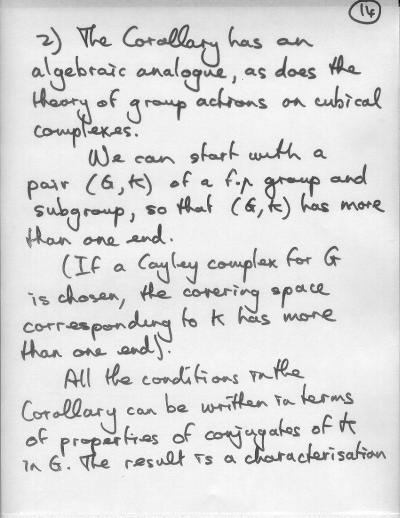 14
2) The Corollary has an
algebraic analogue, as does the
theory of group actions on cubical
complexes.
We can start with a
pair (G, K) of a f.p group and
subgroup, so that (G, K) has more
than one end.
(If a Cayley complex for G
is chosen, the covering space
corresponding to K has more
than one end).
All the conditions in the
Corollary can be written in terms
of properties of conjugates of K
in G. The result is a characterisation